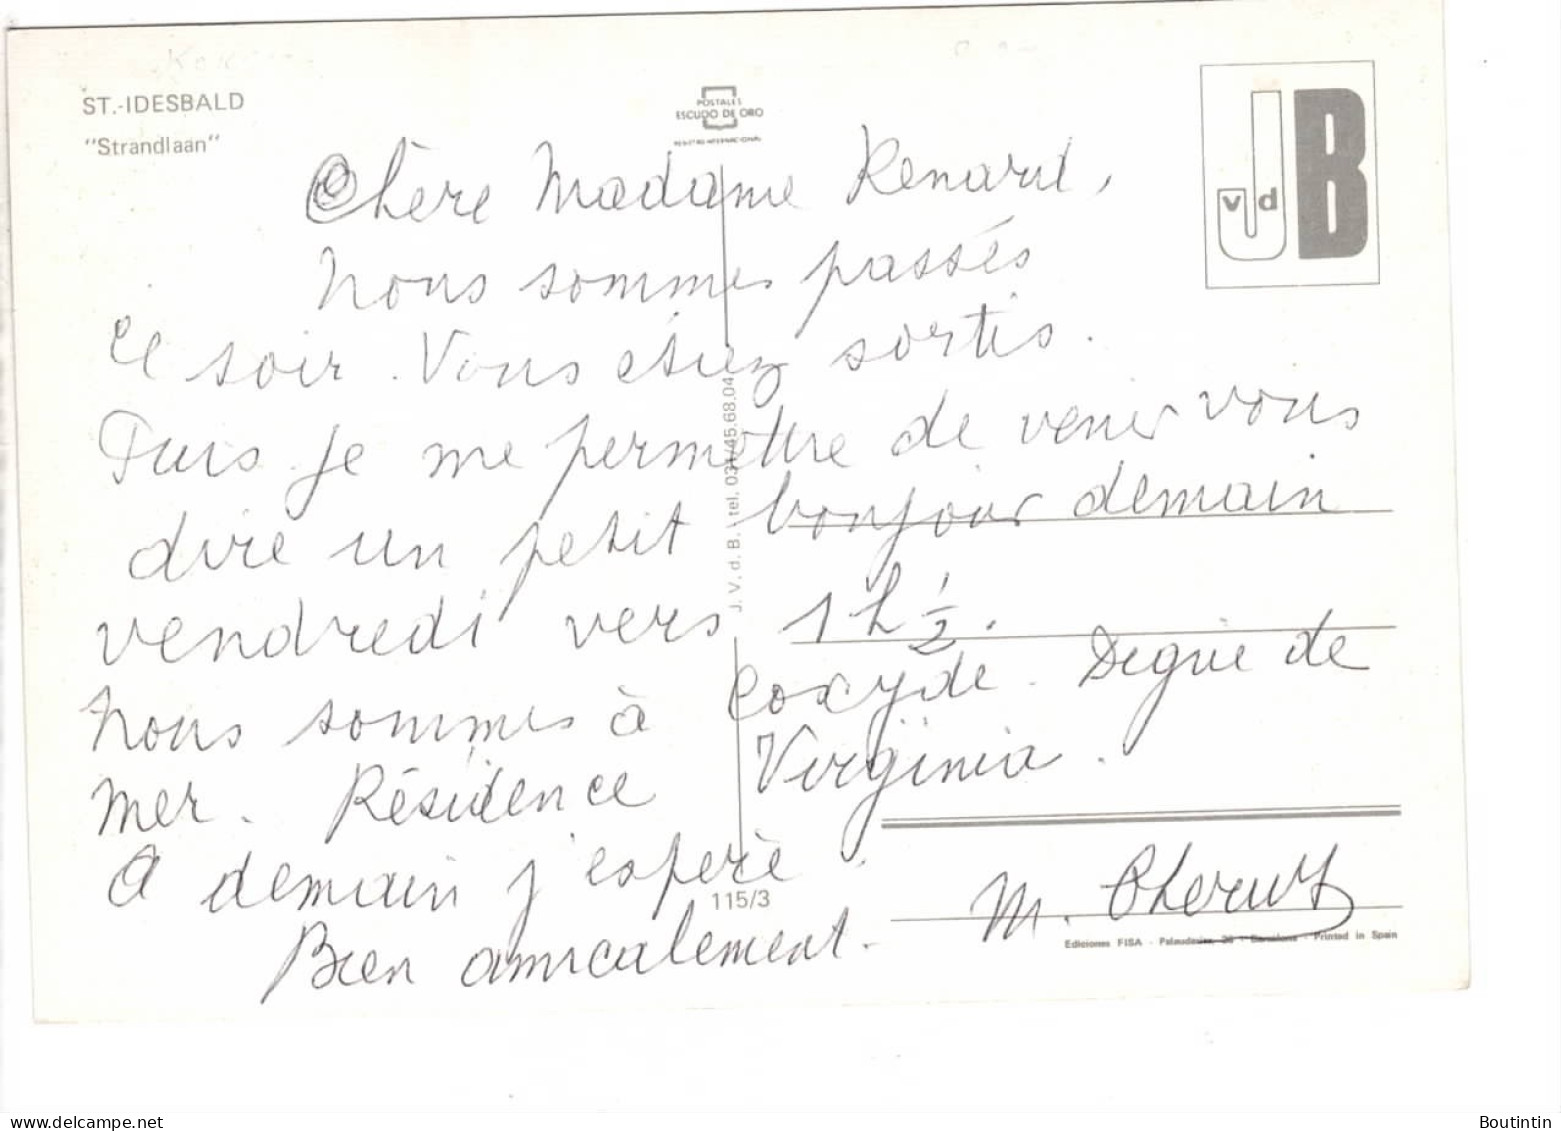 ST.-IDESBALD
"Strandlaan"
POSTALES
ESCUDO DE ORO
J v d B
Chère Madame Renard,
Nous sommes passés
ce soir. Vous étiez sortis.
Puis-je me permettre de venir vous
dire un petit bonjour demain
vendredi vers 1 h 1/2.
Nous sommes à Coxyde. Digue de
mer. Résidence Virginia.
A demain j'espère.
Bien amicalement.
M.
J. V. d. B. tel. 031/45.68.04
115/3
Ediciones FISA - Palaudarias 26 - Barcelona - Printed in Spain
Boutintin